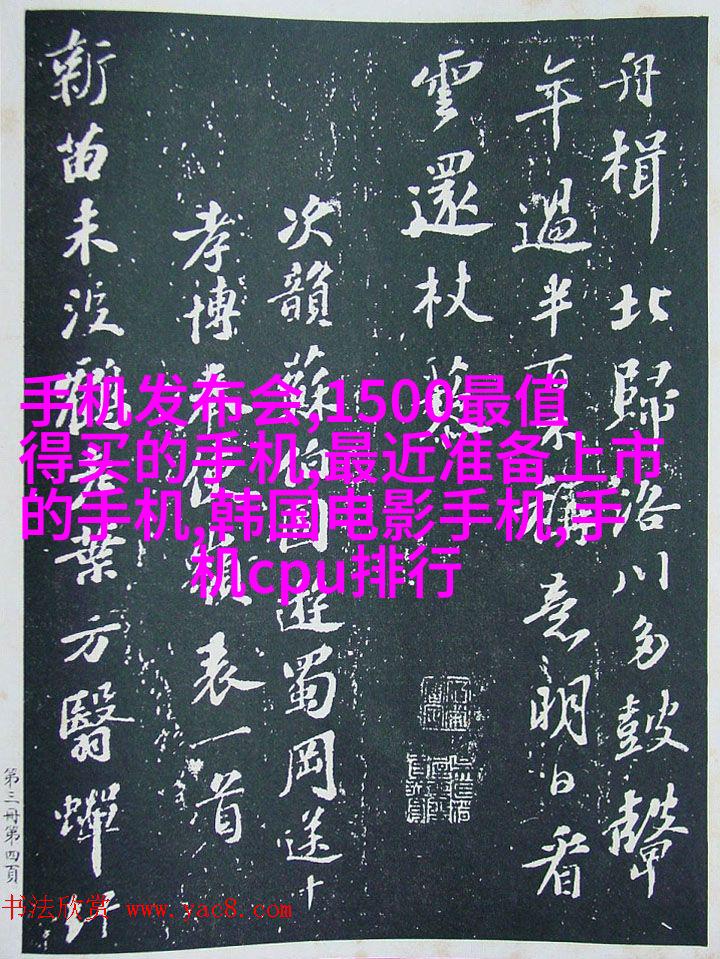 舟楫北歸洛川多鼓聲
年過半意明日看
雲還杖藜
次韻蘇伯固遊蜀岡送
孝博奉使嶺表一首
新苗未沒鶴老葉方翳蟬
第三冊第四頁
手机发布会,1500最值
得买的手机,最近准备上市
的手机,韩国电影手机,手
机cpu排行
书法欣赏 www.yac8.com